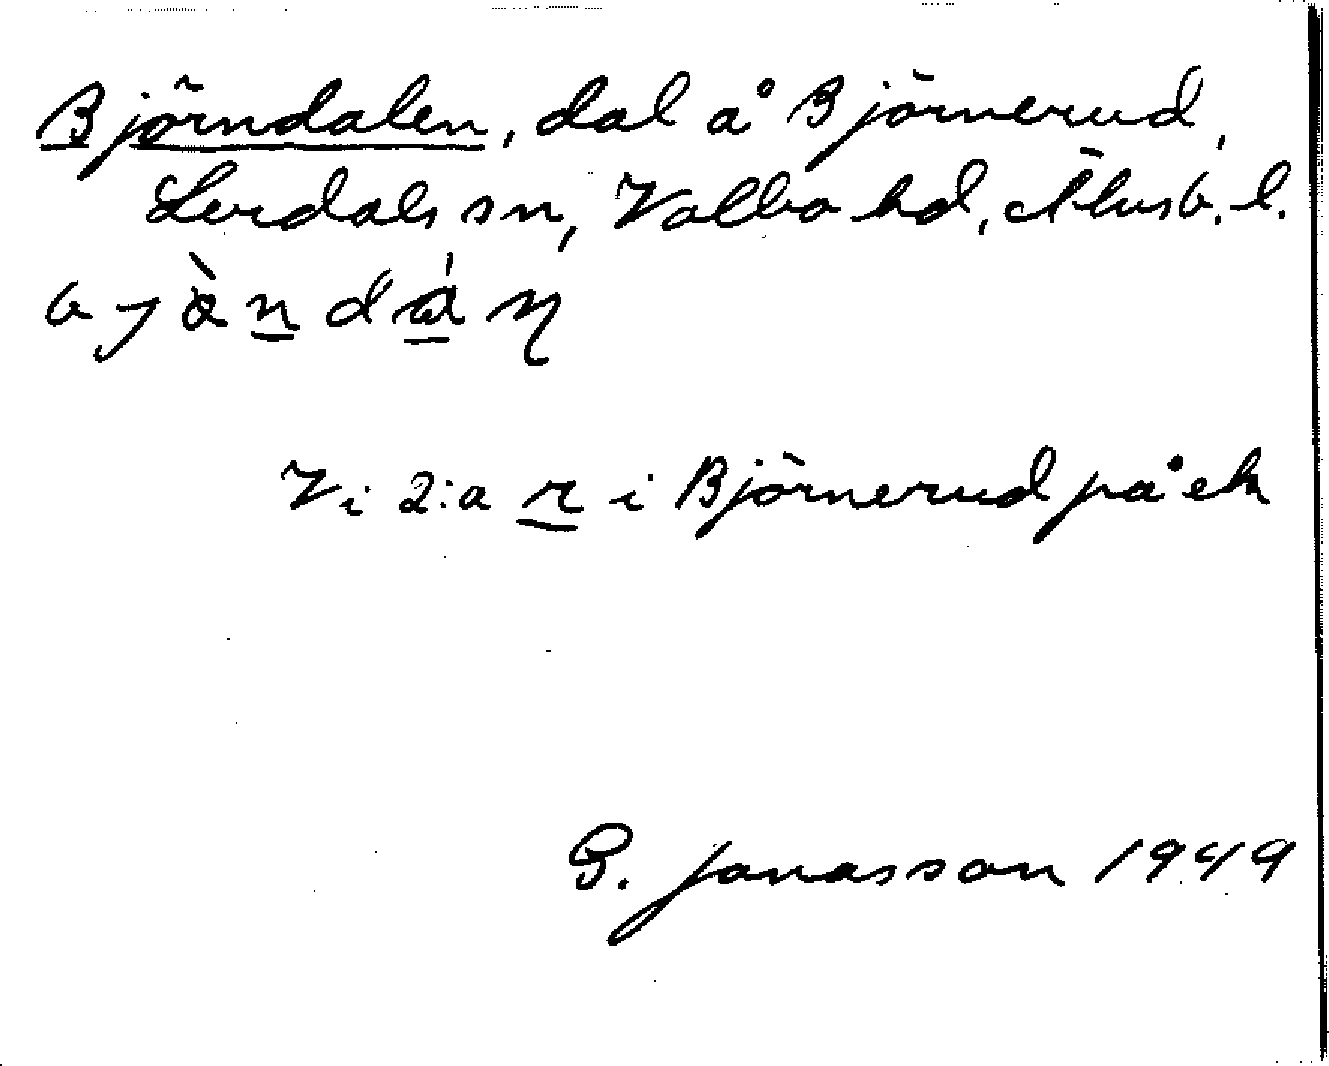 Björndalen, dal å Björnerud,
Lerdals sn, Valbo hd, Älvsb. l.
Vi 2:a r i Björnerud på ek
G. Jonasson 1949